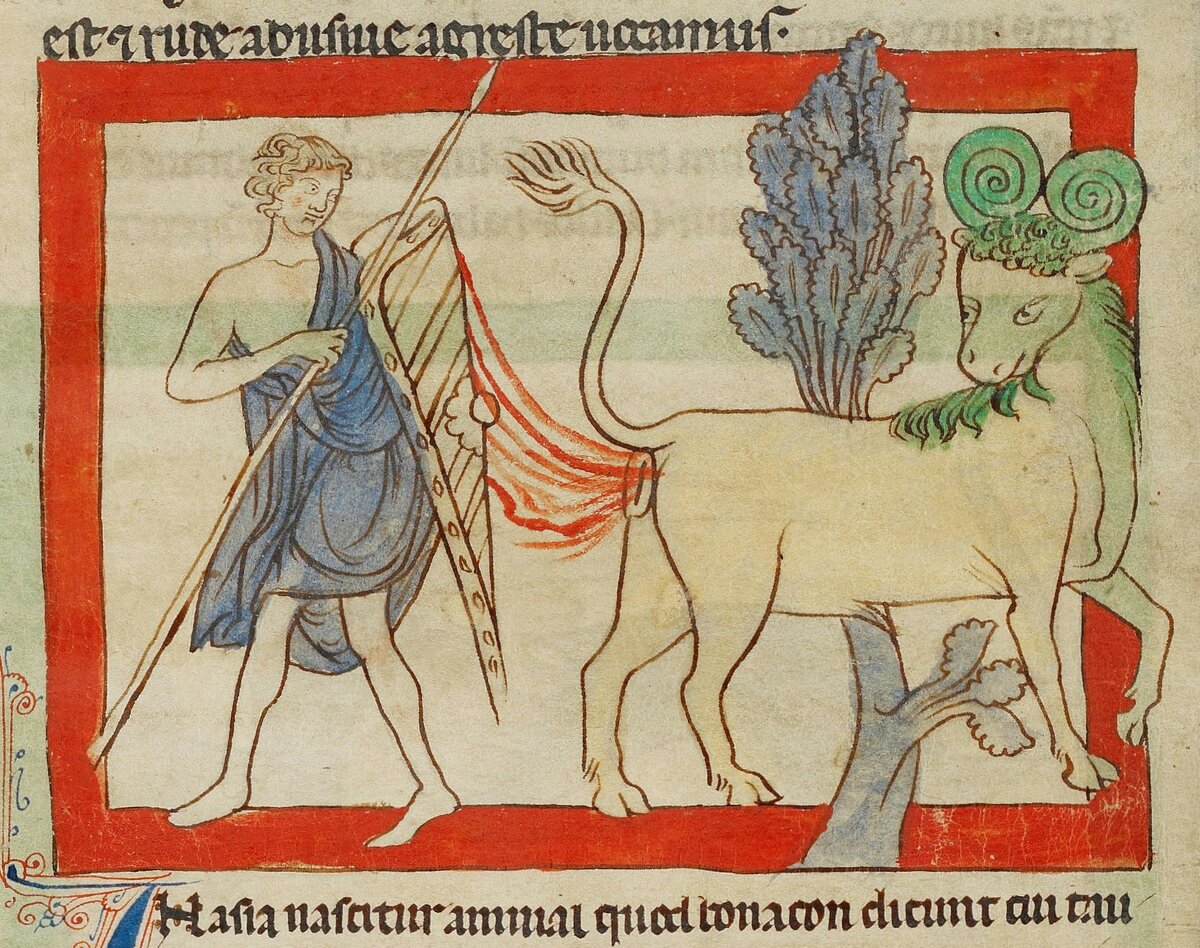 est ⁊ rude abusiue agreste uocamus.
In asia nascitur animal quod bonacon dicunt cui tau